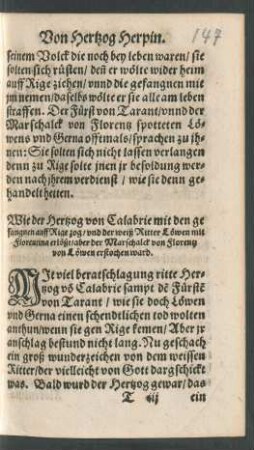 Von Hertzog Herpin.
147
seinem Volck die noch bey leben waren / sie
solten sich rüsten / deñ er wölte wider heim
auff Rige ziehen / vnnd die gefangnen mit
jm nemen / daselbs wölte er sie alle am leben
straffen. Der Fürst von Tarant / vnnd der
Marschalck von Florentz spotteten Lö-
wens vnd Gerna offtmals / sprachen zu jh-
nen: Sie solten sich nicht lassen verlangen
denn zu Rige solte jnen jr besoldung wer-
den nach jhrem verdienst / wie sie denn ge-
handelt hetten.
Wie der Hertzog von Calabrie mit den ge
fangnen auff Rige zog / vnd der weiß Ritter Löwen mit
Florentina erlößt / aber der Marschalck von Florentz
von Löwen erstochen ward.
MIt viel beratschlagung ritte Her-
tzog võ Calabrie sampt dẽ Fürstẽ
von Tarant / wie sie doch Löwen
vnd Gerna einen schendtlichen tod wolten
anthun / wenn sie gen Rige kemen / Aber jr
anschlag bestund nicht lang. Nu geschach
ein groß wunderzeichen von dem weissen
Ritter / der vielleicht von Gott dargschickt
was. Bald wurd der Hertzog gewar / das
T iij ein